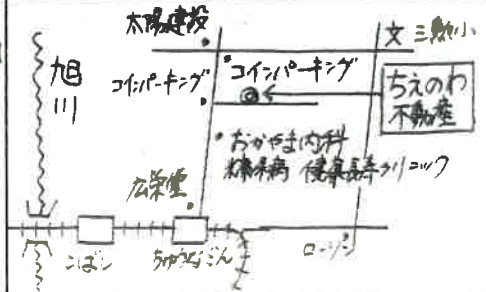 太陽建設
文 三勲小
旭川
コインパーキング
コインパーキング
ちえのわ
不動産
おかやま内科
糖尿病 健康長寿クリニック
広栄堂
こばし
ちゅうなごん
ローソン